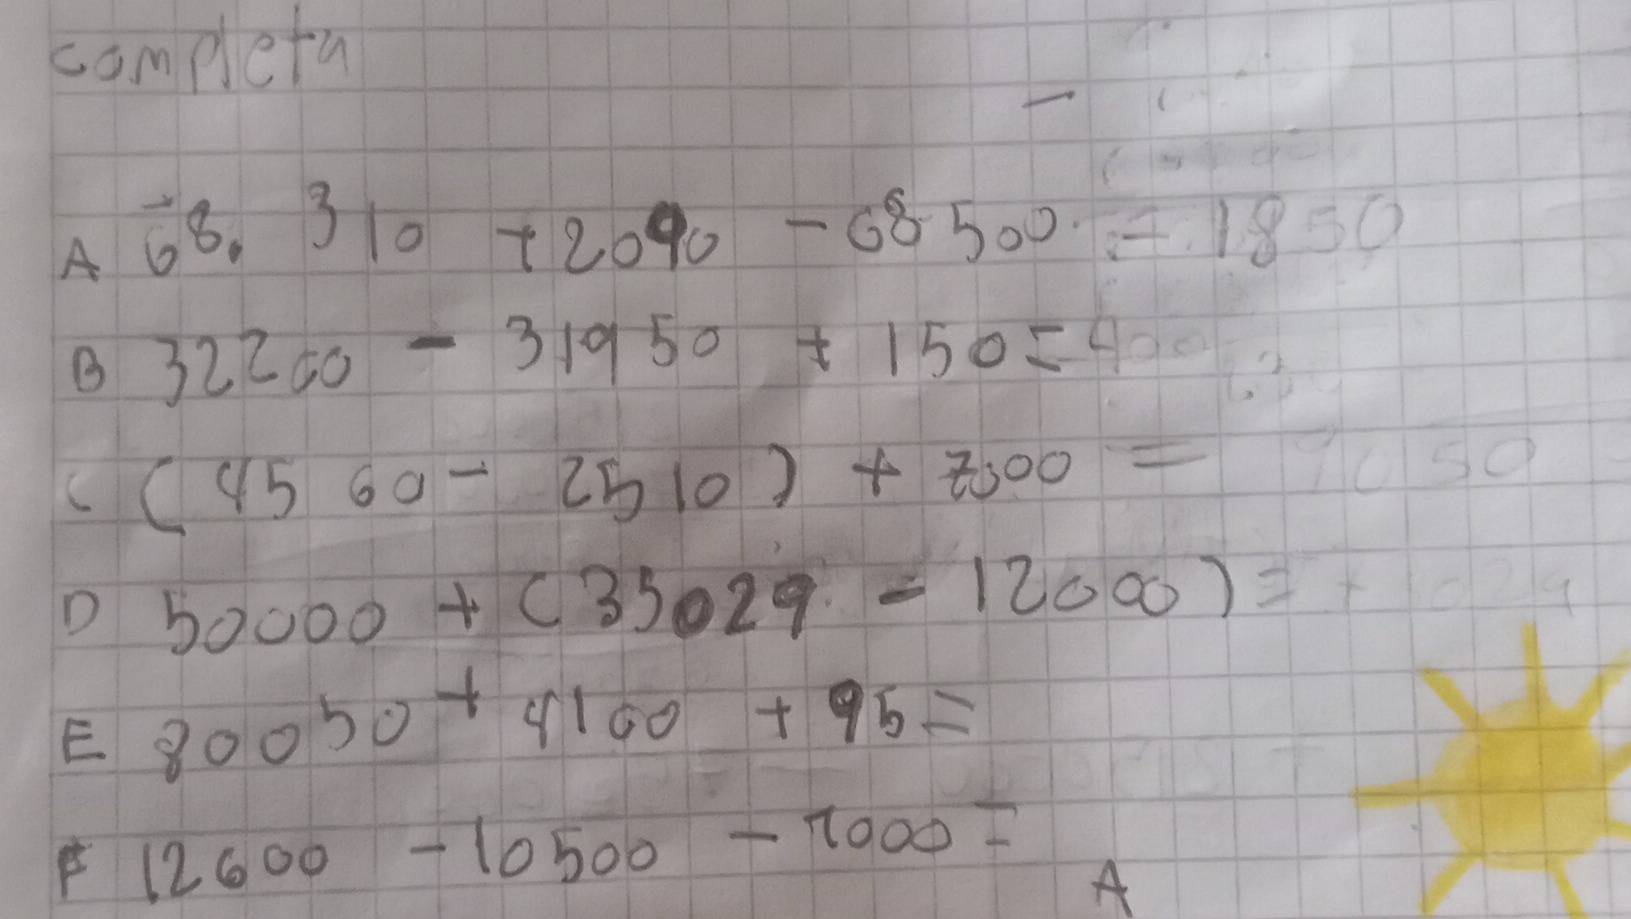 completa
A 68. 310 + 2090 - 68500 = 1850
B 32200 - 31950 + 150 = 400
C (4560 - 2510) + 7000 = 9050
D 50000 + (35029 - 12000) =
E 80050 + 4100 + 95 =
F 12600 - 10500 - 2000 =
A